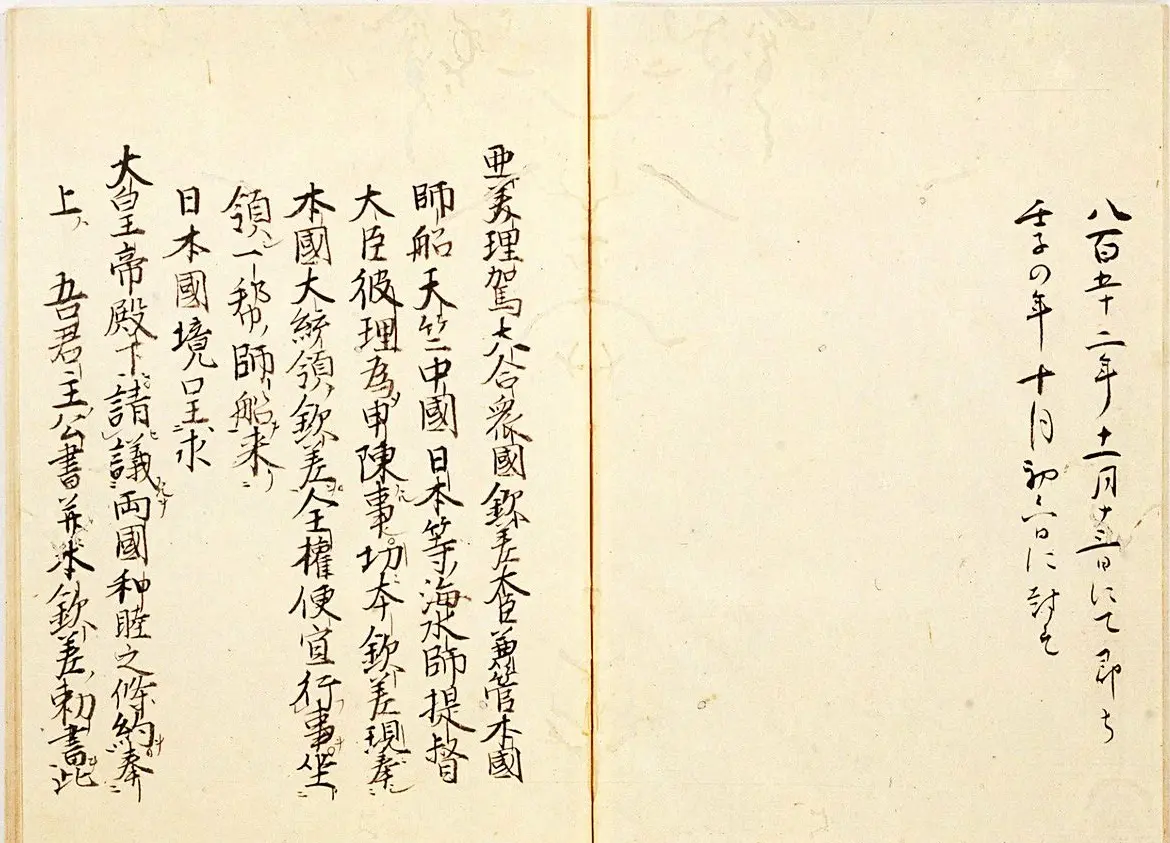 八百五十二年十一月十三日にて即ち
壬子の年十月初六日に對す
亜美理駕大合衆國欽差大臣兼管本國
師船天竺中國日本等海水師提督
大臣彼理為申陳事切本欽差現奉
本國大統領欽差全權便宜行事坐
領一帮師船来
日本國境呈求
大皇帝殿下請議両國和睦之條約奉
上吾君主公書并本欽差勅書此